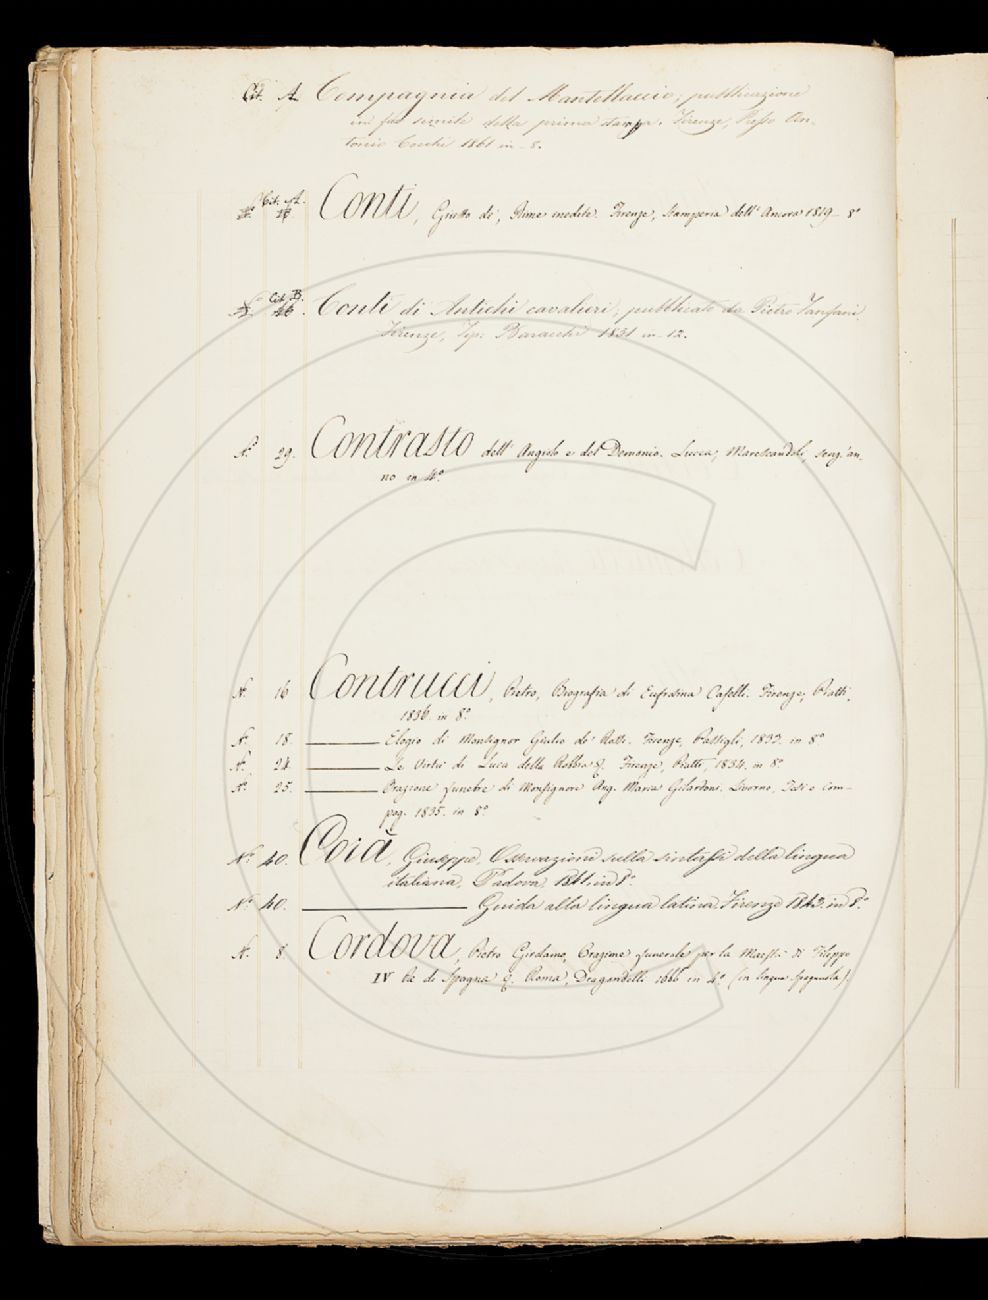 Cit. A. Compagnia del Mantellaccio, pubblicazione
in fac simile della prima stampa. Firenze, Presso An-
tonio Cecchi 1861 in - 8.
Cit. A. Conti, Giusto de', Rime inedite. Firenze, Stamperia dell' Ancora 1819 - 8°
Cit. B. 46. Conti di Antichi cavalieri, pubblicato da Pietro Fanfani.
Firenze, Tip. Baracchi 1851 in - 12.
N. 29. Contrasto dell' Angelo e del Demonio. Lucca, Marescandoli, senz' an-
no in 4°.
N. 16 Contrucci, Pietro, Biografia di Eufrasina Caselli. Firenze, Piatti,
1836. in 8.°
N. 18. Elogio di Monsignor Giulio de' Rossi. Firenze, Passigli, 1833. in 8.°
N. 24. Le Virtù di Luca della Robbia &. Firenze, Piatti, 1834. in 8.°
N. 25. Orazione funebre di Monsignore Ang. Maria Gilardoni. Livorno, Tesi e Com-
pag. 1835. in 8.°
N.° 40. Coià, Giuseppe, Osservazioni sulla sintassi della lingua
italiana, Padova, 1841. in 8.°
N.° 40. Guida alla lingua latina. Firenze 1843. in 8.°
N. 8. Cordova, Pietro Girolamo, Orazione funerale per la Maestà di Filippo
IV Re di Spagna &. Roma, Dragondelli 1666 in 4.° (in lingua Spagnuola).